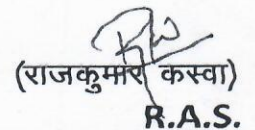 (राजकुमार कस्वा)
R.A.S.